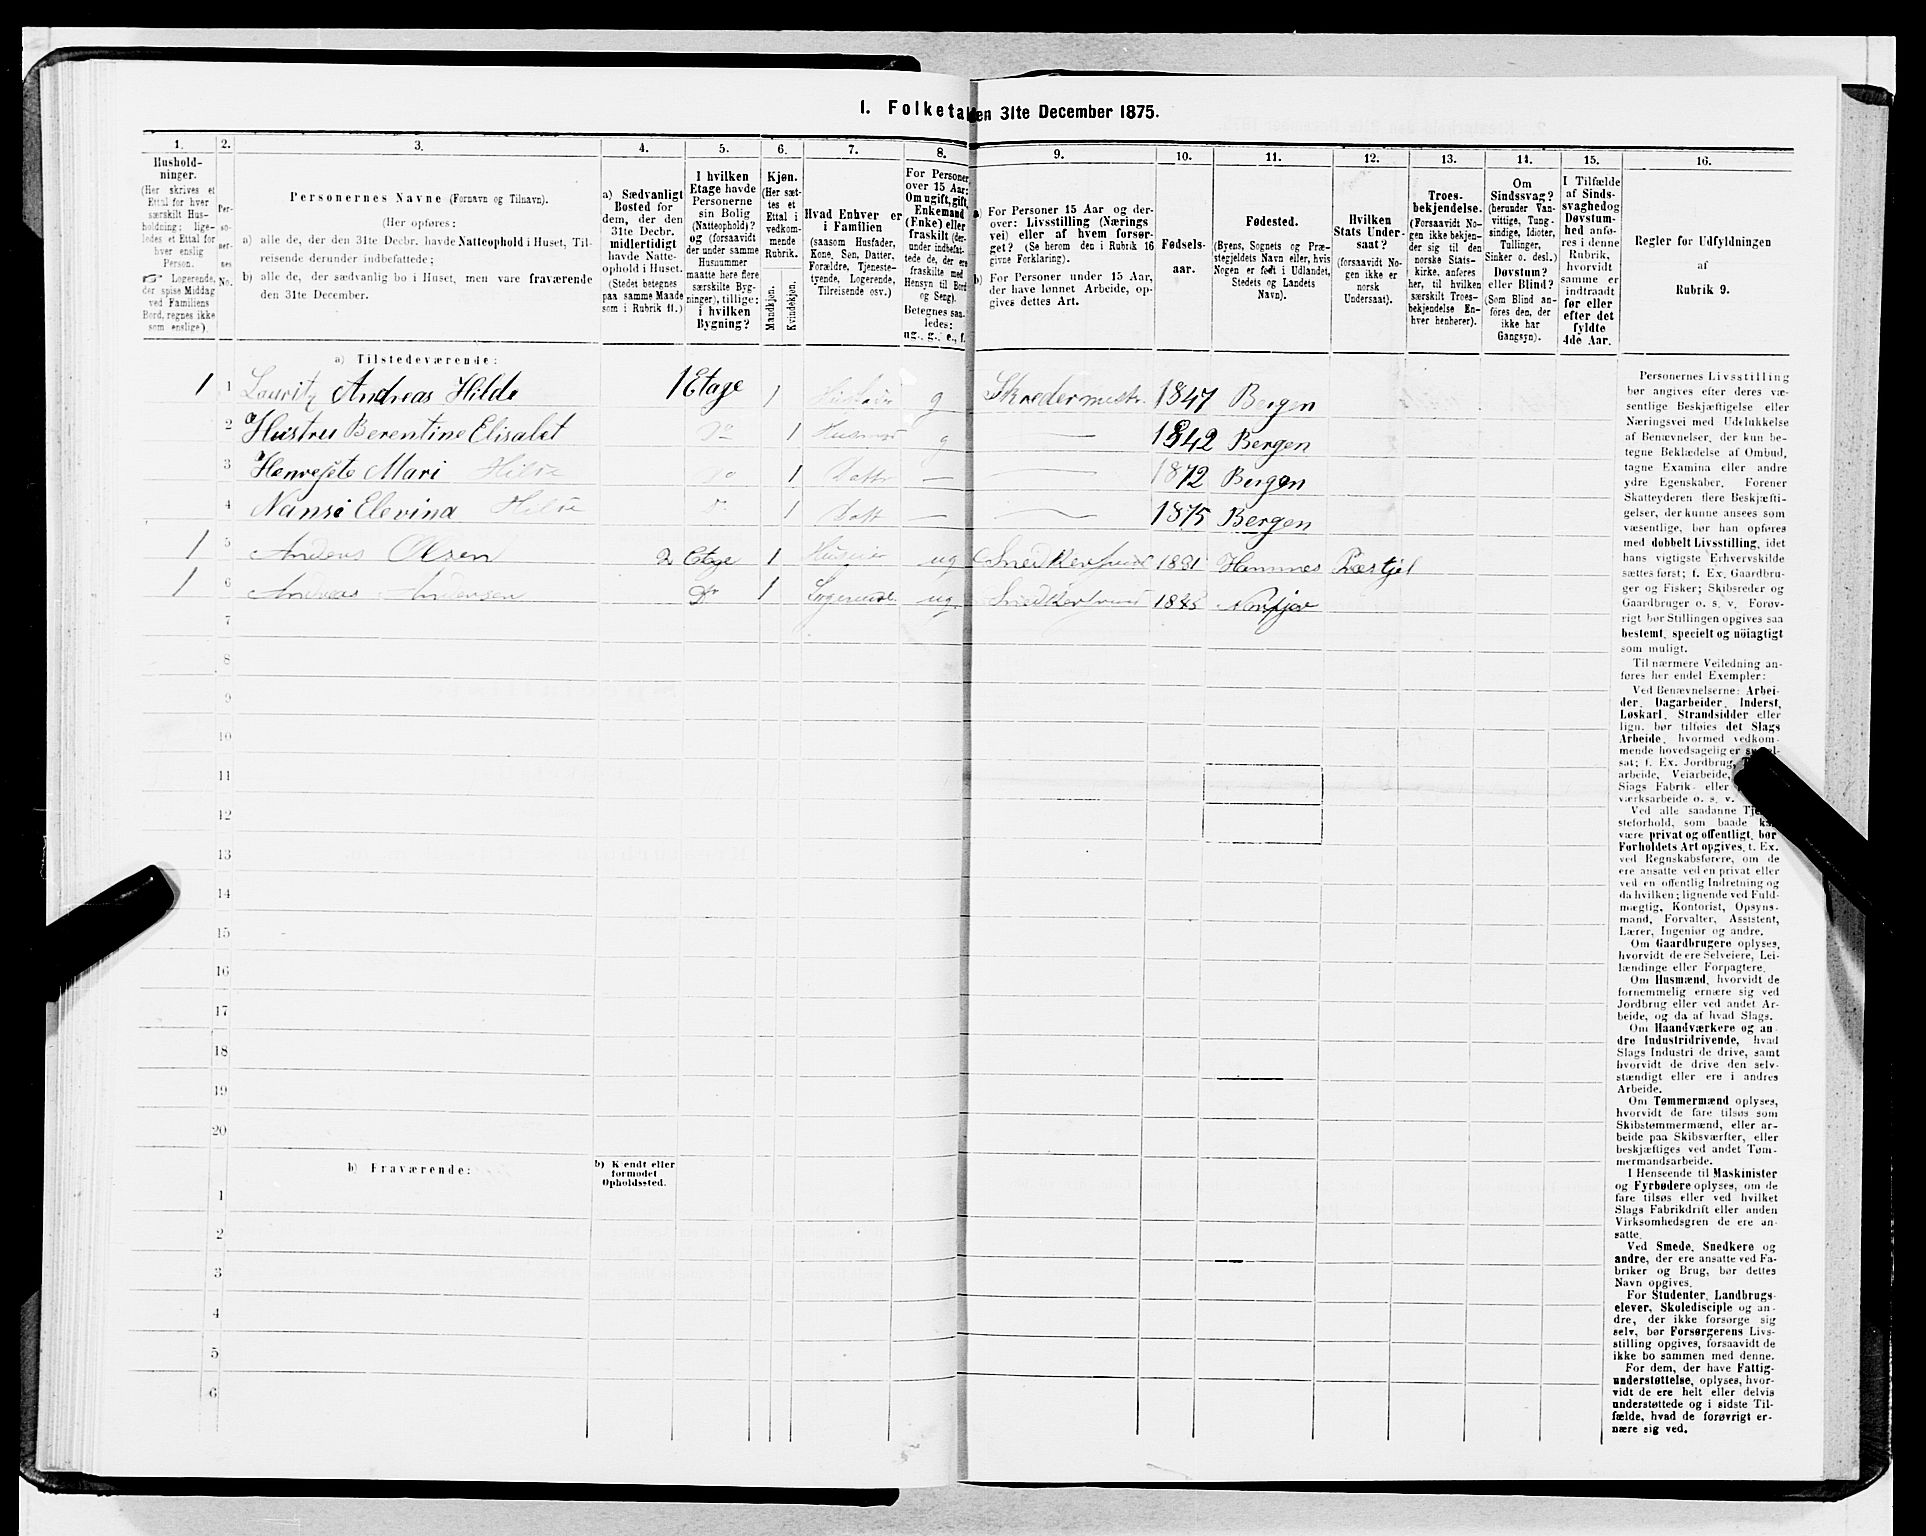 1. Folketal den 31te December 1875.
1. 2. 3. 4. 5. 6. 7. 8. 9. 10. 11. 12. 13. 14. 15. 16.
Hushold-
ninger.
(Her skrives et
Ettal for hver
særskilt Hus-
holdning; lige-
ledes et Ettal for
hver enslig
Person.
☞ Logerende,
der spise Middag
ved Familiens
Bord, regnes ikke
som enslige).
Per-
so-
ner-
nes
No.
Personernes Navne (Fornavn og Tilnavn).
(Her opføres:
a) alle de, der den 31te Decbr. havde Natteophold i Huset, Til-
reisende derunder indbefattede;
b) alle de, der sædvanlig bo i Huset, men vare fraværende
den 31te December.
a) Sædvanligt
Bosted for
dem, der den
31te Decbr.
midlertidigt
havde Natte-
ophold i Huset.
(Stedet betegnes
paa samme Maade
som i Rubrik 11.)
I hvilken
Etage havde
Personerne
sin Bolig
(Natteophold)?
og (forsaavidt
der under samme
Husnummer
maatte here flere
særskilte Byg-
ninger), tillige:
i hvilken
Bygning?
Kjøn.
(Her sæt-
tes et
Ettal i
vedkom-
mende
Rubrik.
Mandkjøn.
Kvindekjøn.
Hvad Enhver er
i Familien
(saasom Husfader,
Kone, Søn, Datter,
Forældre, Tjeneste-
tyende, Logerende,
Tilreisende osv.)
For Personer
over 15 Aar:
Om ugift, gift,
Enkemand
(Enke) eller
fraskilt (der-
under indbefat-
tede de, der ere
fraskilte med
Hensyn til Bord
og Seng).
Betegnes saa-
ledes:
ug., g., e., f.
a) For Personer 15 Aar og der-
over: Livsstilling (Nærings
vei) eller af hvem forsør-
get? (Se herom den i Rubrik 16
givne Forklaring).
b) For Personer under 15 Aar,
der have lønnet Arbeide, op-
gives dettes Art.
Fødsels-
aar.
Fødested.
(Byens, Sognets og Præ-
stegjeldets Navn eller, hvis
Nogen er født i Udlandet,
Stedets og Landets
Navn).
Hvilken
Stats Under-
saat?
(forsaavidt No-
gen ikke er
norsk
Undersaat).
Troes-
bekjendelse.
(Forsaavidt No-
gen ikke bekjen-
der sig til den
norske Stats-
kirke, anføres
her, til hvilken
særskilt Troes-
bekjendelse En-
hver henhører).
Om
Sindssvag?
(herunder Van-
vittige, Tung-
sindige, Idioter,
Tullinger,
Sinker o. desl.)
Døvstum?
eller Blind?
(Som Blind an-
føres den, der
ikke har
Gangsyn).
I Tilfælde
af Sinds-
svaghed og
Døvstum-
hed anfø-
res i denne
Rubrik,
hvorvidt
samme er
indtraadt
før eller
efter det
fyldte
4de Aar.
Regler for Udfyldningen
af
Rubrik 9.
a) Tilstedeværende:
1 1 Lauritz Andreas Hilde 1 Etage 1 g Skredermestr. 1847 Bergen
2 Hustru Berentine Elisabet Do 1 Husmor g 1842 Bergen
3 Mari Hilde Do 1 Dattr 1872 Bergen
4 Nansi Elevina Hilde Do 1 Datt 1875 Bergen
1 5 Anders Olsen 2 Etage 1 ug Hemnes Præstjel
1 6 Andreas Andersen Do 1 ug 1845
7
8
9
10
11
12
13
14
15
16
17
18
19
20
b) Fraværende:
b) Kjendt eller
formodet
Opholdssted.
1
2
3
4
5
6
Personernes Livsstilling
bør angives efter deres væ-
sentlige Beskjæftigelse eller
Næringsvei med Udelukkelse
af Benævnelser, der kun be-
tegne Beklædelse af Ombud,
tagne Examina eller andre
ydre Egenskaber. Forener
Skatteyderen flere Beskjæfti-
gelser, der kunne ansees som
væsentlige, bør han opføres
med dobbelt Livsstilling, idet
hans vigtigste Erhvervskilde
sættes først; f. Ex. Gaardbru-
ger og Fisker; Skibsreder og
Gaardbruger o. s. v. Forøv-
rigt bør Stillingen opgives saa
bestemt, specielt og nöiagtigt
som muligt.
Til nærmere Veiledning an-
føres her endel Exempler:
Ved Benævnelserne: Arbei-
der, Dagarbeider, Inderst,
Løskarl, Strandsidder eller
lign. bør tilføies det Slags
Arbeide, hvormed vedkom-
mende hovedsagelig er
sat; f. Ex. Jordbrug,
arbeide, Veiarbeide,
Slags Fabrik- eller
værksarbeide o. s. v.
Ved alle saadanne
steforhold, som baade
være privat og offentligt, bør
Forholdets Art opgives, t. Ex.
ved Regnskabsførere, om de
ere ansatte ved en privat eller
ved en offentlig Indretning og
da hvilken; lignende ved Fuld-
mægtig, Kontorist, Opsyns-
mand, Forvalter, Assistent,
Lærer, Ingeniør og andre.
Om Gaardbrugere oplyses,
hvorvidt de ere Selveiere, Lei-
lændinge eller Forpagtere.
Om Husmænd, hvorvidt de
fornemmelig ernære sig ved
Jordbrug eller ved andet Ar-
beide, og da af hvad Slags.
Om Haandværkere og an-
dre Industridrivende, hvad
Slags Industri de drive, samt
hvorvidt de drive den selv-
stændigt eller ere i andres
Arbeide.
Om Tømmermænd oplyses,
hvorvidt de fare tilsøs som
Skibstømmermænd, eller ar-
beide paa Skibsværfter, eller
beskjæftiges ved andet Tøm-
mermandsarbeide.
I Henseende til Maskinister
og Fyrbødere oplyses, om de
fare tilsøs eller ved hvilket
Slags Fabrikdrift eller anden
Virksomhedsgren de ere an-
satte.
Ved Smede, Snedkere og
andre, der ere ansatte ved Fa-
briker og Brug, bør dettes
Navn opgives.
For Studenter, Landbrugs-
elever, Skoledisciple og an-
dre, der ikke forsørge sig
selv, bør Forsørgerens Livs-
stilling opgives, forsaavidt de
ikke bo sammen med denne.
For dem, der have Fattig-
understøttelse, oplyses, hvor-
vidt de ere helt eller delvis
understøttede og i sidste Til-
fælde, hvad de forøvrigt er-
nære sig ved.